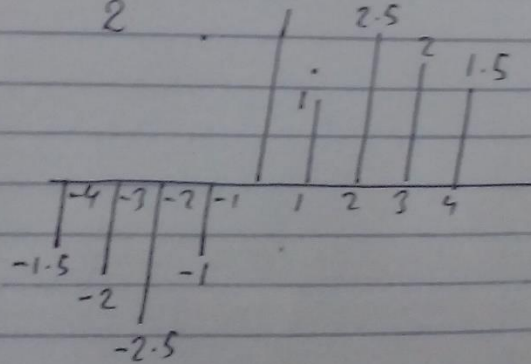 2
2.5
2
1.5
1
-4 -3 -2 -1 1 2 3 4
-1.5
-1
-2
-2.5